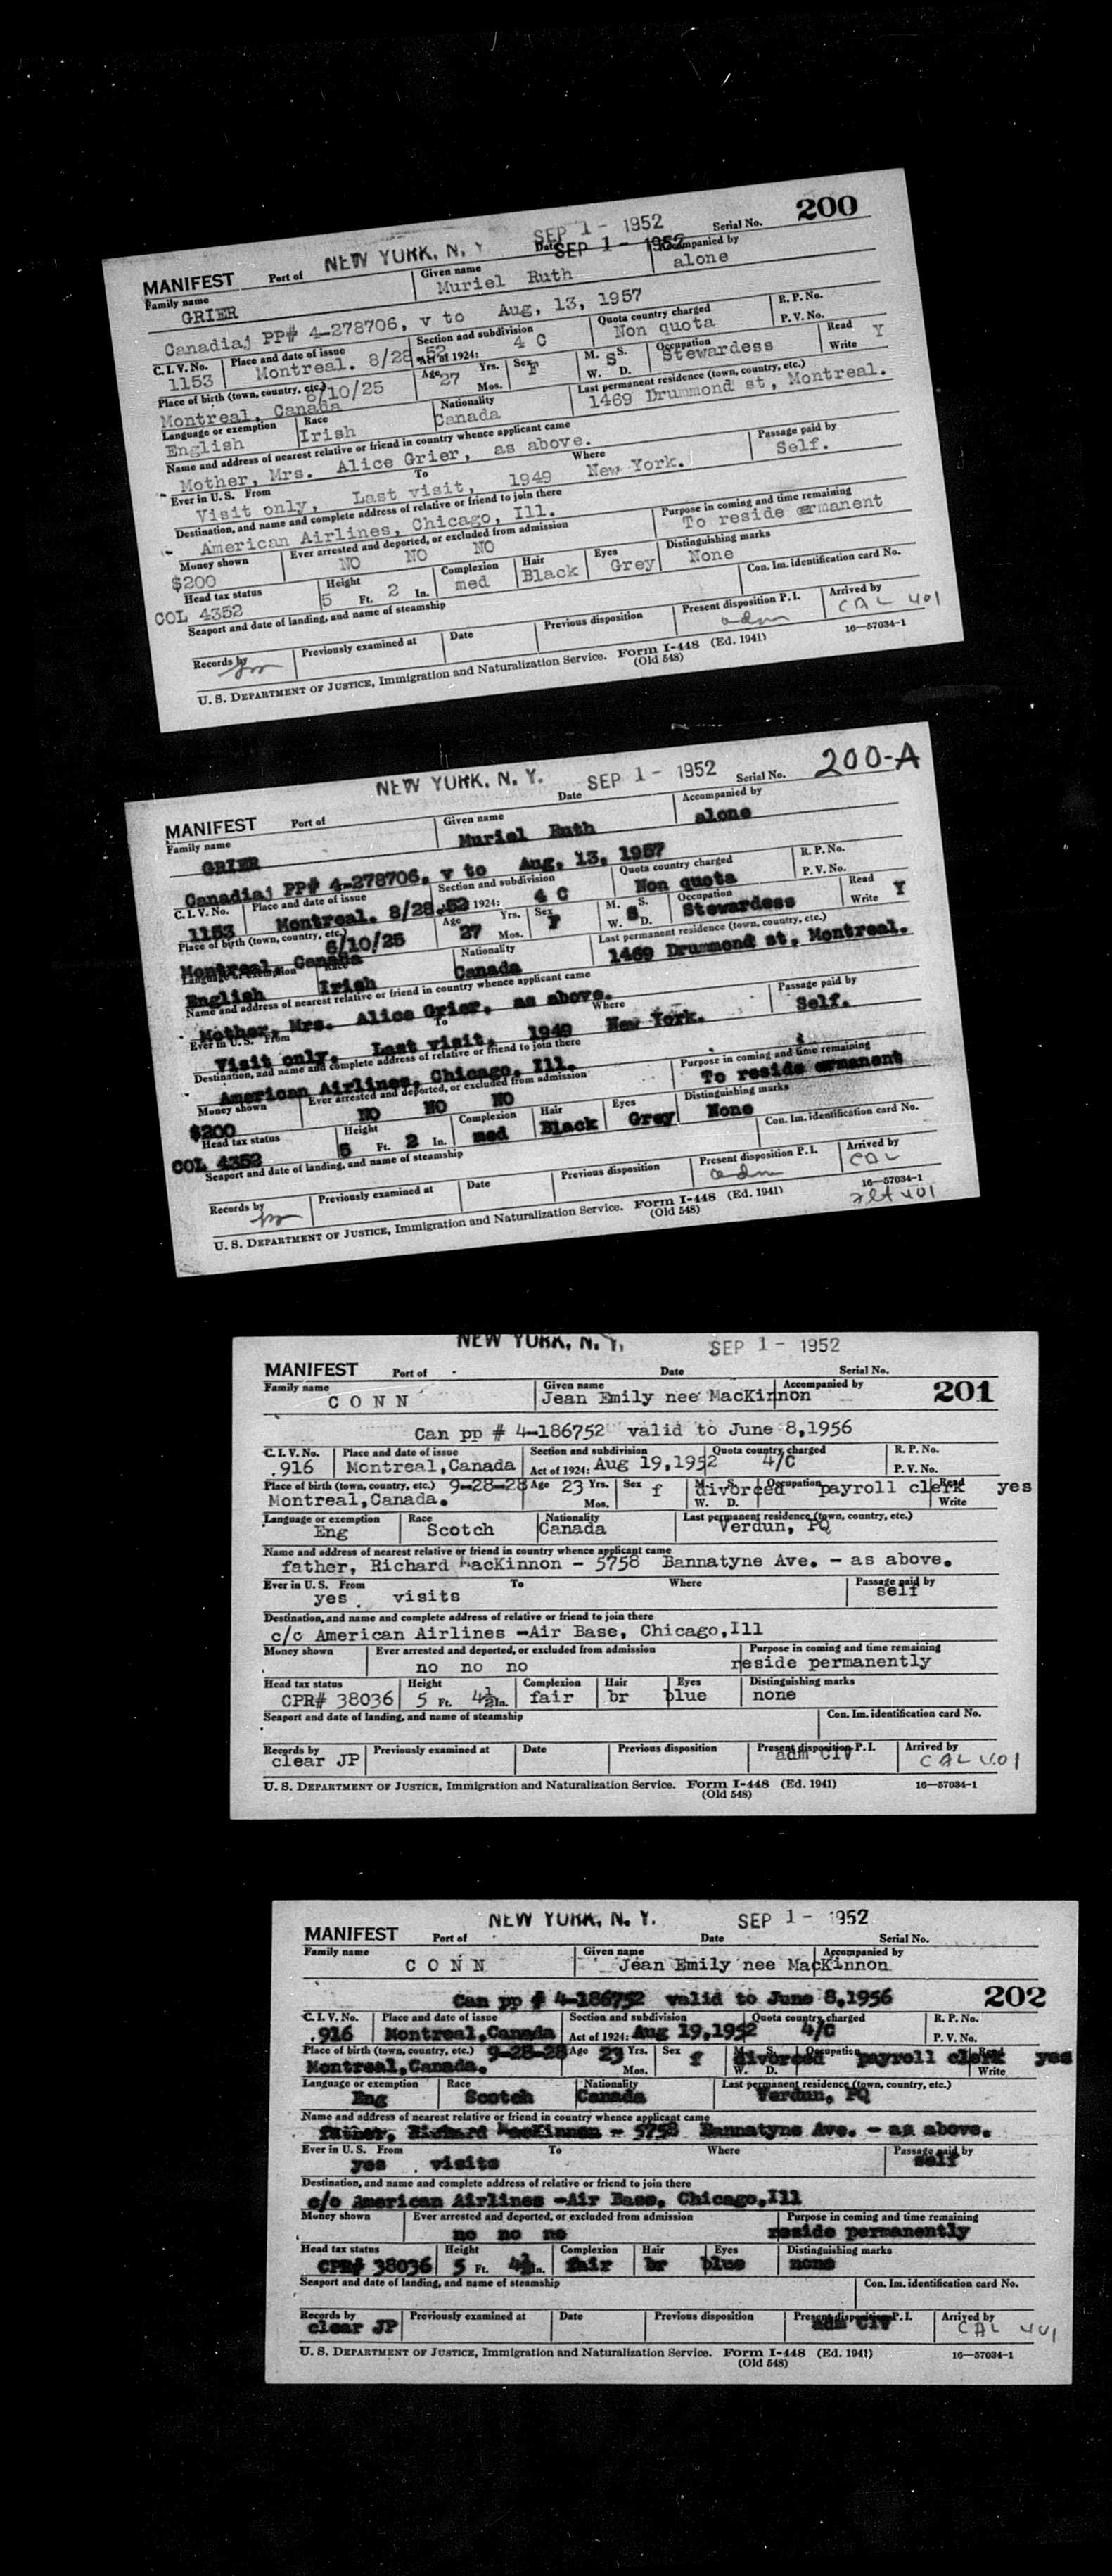 200
NEW YORK, N. Y
SEP 1 - 1952
SEP 1 - 1952
MANIFEST Port of Date Serial No.
Family name Given name Accompanied by
GRIER Muriel Ruth alone
Canadiaj PP# 4-278706, v to Aug, 13, 1957
C. I. V. No. Place and date of issue Section and subdivision Quota country charged R. P. No.
1153 Montreal. 8/28.52 Act of 1924: 4 C Non quota P. V. No.
Place of birth (town, country, etc.) Age Yrs. Sex M. S. Occupation Read
Montreal, Canada 6/10/25 27 Mos. F W. S D. Stewardess Write Y
Language or exemption Race Nationality Last permanent residence (town, country, etc.)
English Irish Canada 1469 Drummond st, Montreal.
Name and address of nearest relative or friend in country whence applicant came
Mother, Mrs. Alice Grier, as above.
Ever in U. S. From To Where Passage paid by
Visit only, Last visit, 1949 New York. Self.
Destination, and name and complete address of relative or friend to join there Purpose in coming and time remaining
American Airlines, Chicago, Ill. To reside ermanent
Money shown Ever arrested and deported, or excluded from admission Distinguishing marks
$200 NO NO NO None
Head tax status Height Complexion Hair Eyes Con. Im. identification card No.
COL 4352 5 Ft. 2 In. med Black Grey
Seaport and date of landing, and name of steamship
Records by Previously examined at Date Previous disposition Present disposition P. I. Arrived by
adm CAL 401
U. S. DEPARTMENT OF JUSTICE, Immigration and Naturalization Service. Form I-448 (Ed. 1941) 16—57034-1
(Old 548)
NEW YORK, N. Y. SEP 1 - 1952 200-A
MANIFEST Port of Date Serial No.
Family name Given name Accompanied by
GRIER Muriel Ruth alone
Canadiaj PP# 4-278706, v to Aug, 13, 1957
C. I. V. No. Place and date of issue Section and subdivision Quota country charged R. P. No.
1153 Montreal. 8/28.52 1924: 4 C Non quota P. V. No.
Place of birth (town, country, etc.) Age Yrs. Sex M. S. Occupation Read
Montreal, Canada 6/10/25 27 Mos. F W. S D. Stewardess Write Y
Language or exemption Race Nationality Last permanent residence (town, country, etc.)
English Irish Canada 1469 Drummond st, Montreal.
Name and address of nearest relative or friend in country whence applicant came
Mother, Mrs. Alice Grier, as above.
Ever in U. S. From To Where Passage paid by
Visit only, Last visit, 1949 New York. Self.
Destination, and name and complete address of relative or friend to join there Purpose in coming and time remaining
American Airlines, Chicago, Ill. To reside ermanent
Money shown Ever arrested and deported, or excluded from admission Distinguishing marks
$200 NO NO NO None
Head tax status Height Complexion Hair Eyes Con. Im. identification card No.
COL 4352 5 Ft. 2 In. med Black Grey
Seaport and date of landing, and name of steamship
Records by Previously examined at Date Previous disposition Present disposition P. I. Arrived by
adm CAL
U. S. DEPARTMENT OF JUSTICE, Immigration and Naturalization Service. Form I-448 (Ed. 1941) 16—57034-1
(Old 548) flt 401
NEW YORK, N. Y. SEP 1 - 1952
MANIFEST Port of Date Serial No.
Family name Given name Accompanied by
CONN Jean Emily nee MacKinnon 201
Can pp # 4-186752 valid to June 8,1956
C. I. V. No. Place and date of issue Section and subdivision Quota country charged R. P. No.
.916 Montreal,Canada Act of 1924: Aug 19,1952 4/C P. V. No.
Place of birth (town, country, etc.) 9-28-28 Age 23 Yrs. Sex f M. S. divorced Occupation payroll clerk Read yes
Montreal,Canada. Mos. W. D. Write
Language or exemption Race Nationality Last permanent residence (town, country, etc.)
Eng Scotch Canada Verdun, PQ
Name and address of nearest relative or friend in country whence applicant came
father, Richard MacKinnon - 5758 Bannatyne Ave. - as above.
Ever in U. S. From To Where Passage paid by
yes . visits self
Destination, and name and complete address of relative or friend to join there
c/o American Airlines -Air Base, Chicago,Ill
Money shown Ever arrested and deported, or excluded from admission Purpose in coming and time remaining
no no no reside permanently
Head tax status Height Complexion Hair Eyes Distinguishing marks
CPR# 38036 5 Ft. 4½ In. fair br blue none
Seaport and date of landing, and name of steamship Con. Im. identification card No.
Records by Previously examined at Date Previous disposition Present disposition P. I. Arrived by
clear JP adm CIV CAL 401
U. S. DEPARTMENT OF JUSTICE, Immigration and Naturalization Service. Form I-448 (Ed. 1941) 16—57034-1
(Old 548)
NEW YORK, N. Y. SEP 1 - 1952
MANIFEST Port of Date Serial No.
Family name Given name Accompanied by
CONN Jean Emily nee MacKinnon
Can pp # 4-186752 valid to June 8,1956 202
C. I. V. No. Place and date of issue Section and subdivision Quota country charged R. P. No.
.916 Montreal,Canada Act of 1924: Aug 19,1952 4/C P. V. No.
Place of birth (town, country, etc.) 9-28-28 Age 23 Yrs. Sex f M. S. divorced Occupation payroll clerk Read yes
Montreal,Canada. Mos. W. D. Write
Language or exemption Race Nationality Last permanent residence (town, country, etc.)
Eng Scotch Canada Verdun, PQ
Name and address of nearest relative or friend in country whence applicant came
father, Richard MacKinnon - 5758 Bannatyne Ave. - as above.
Ever in U. S. From To Where Passage paid by
yes . visits self
Destination, and name and complete address of relative or friend to join there
c/o American Airlines -Air Base, Chicago,Ill
Money shown Ever arrested and deported, or excluded from admission Purpose in coming and time remaining
no no no reside permanently
Head tax status Height Complexion Hair Eyes Distinguishing marks
CPR# 38036 5 Ft. 4½ In. fair br blue none
Seaport and date of landing, and name of steamship Con. Im. identification card No.
Records by Previously examined at Date Previous disposition Present disposition P. I. Arrived by
clear JP adm CIV CAL 401
U. S. DEPARTMENT OF JUSTICE, Immigration and Naturalization Service. Form I-448 (Ed. 1941) 16—57034-1
(Old 548)